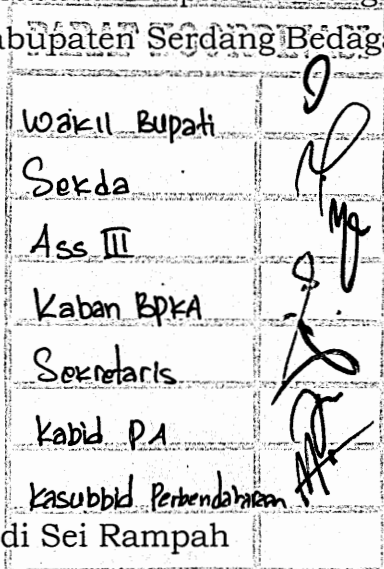 abupaten Serdang Bedaga
Wakil Bupati
Sekda
Ass III
Kaban BPKA
Sekretaris
Kabid PA
Kasubbid Perbendaharaan
di Sei Rampah